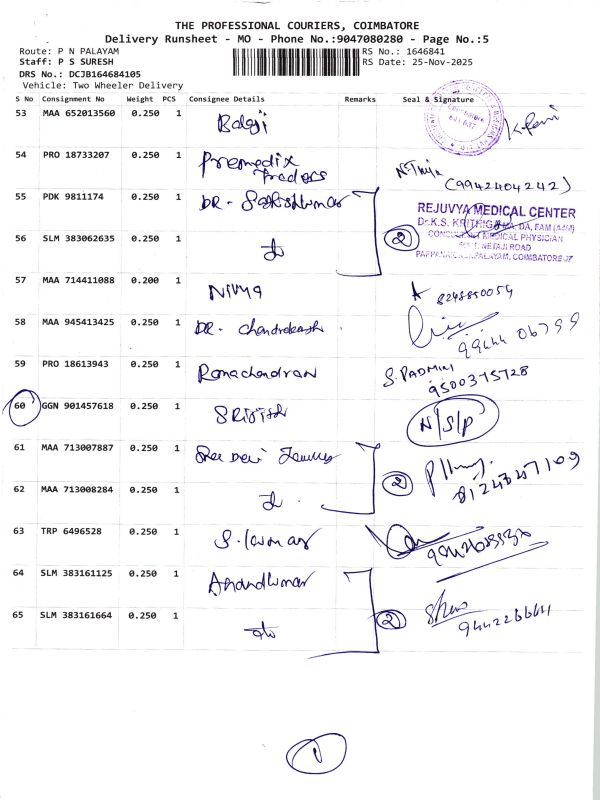 THE PROFESSIONAL COURIERS, COIMBATORE
Delivery Runsheet - MO - Phone No.:9047080280 - Page No.:5
Route: P N PALAYAM
RS No.: 1646841
Staff: P S SURESH
RS Date: 25-Nov-2025
DRS No.: DCJB164684105
Vehicle: Two Wheeler Delivery
S No Consignment No Weight PCS Consignee Details Remarks Seal & Signature
53 MAA 652013560 0.250 1 Balaji
Coimbatore
641 037
54 PRO 18733207 0.250 1 Premedix Traders
(9942404242)
55 PDK 9811174 0.250 1 DR. Sathishkumar
REJUVYA MEDICAL CENTER
Dr.K.S. KRITHIGHA, DA, FAM (A&M)
CONSULTANT MEDICAL PHYSICIAN
NETAJI ROAD
PAPPANAICKENPALAYAM, COIMBATORE-37
56 SLM 383062635 0.250 1 do 2
57 MAA 714411088 0.200 1 Nivya
58 MAA 945413425 0.250 1 DR. Chandrakash
99444 06799
59 PRO 18613943 0.250 1 Ramachandran S. PADMINI
9500375728
60 GGN 901457618 0.250 1 SRIJITH N/S/P
61 MAA 713007887 0.250 1 Sree Devi
62 MAA 713008284 0.250 1 do 2
63 TRP 6496528 0.250 1 S. Kumar
64 SLM 383161125 0.250 1 Anandkumar
65 SLM 383161664 0.250 1 do 2
1